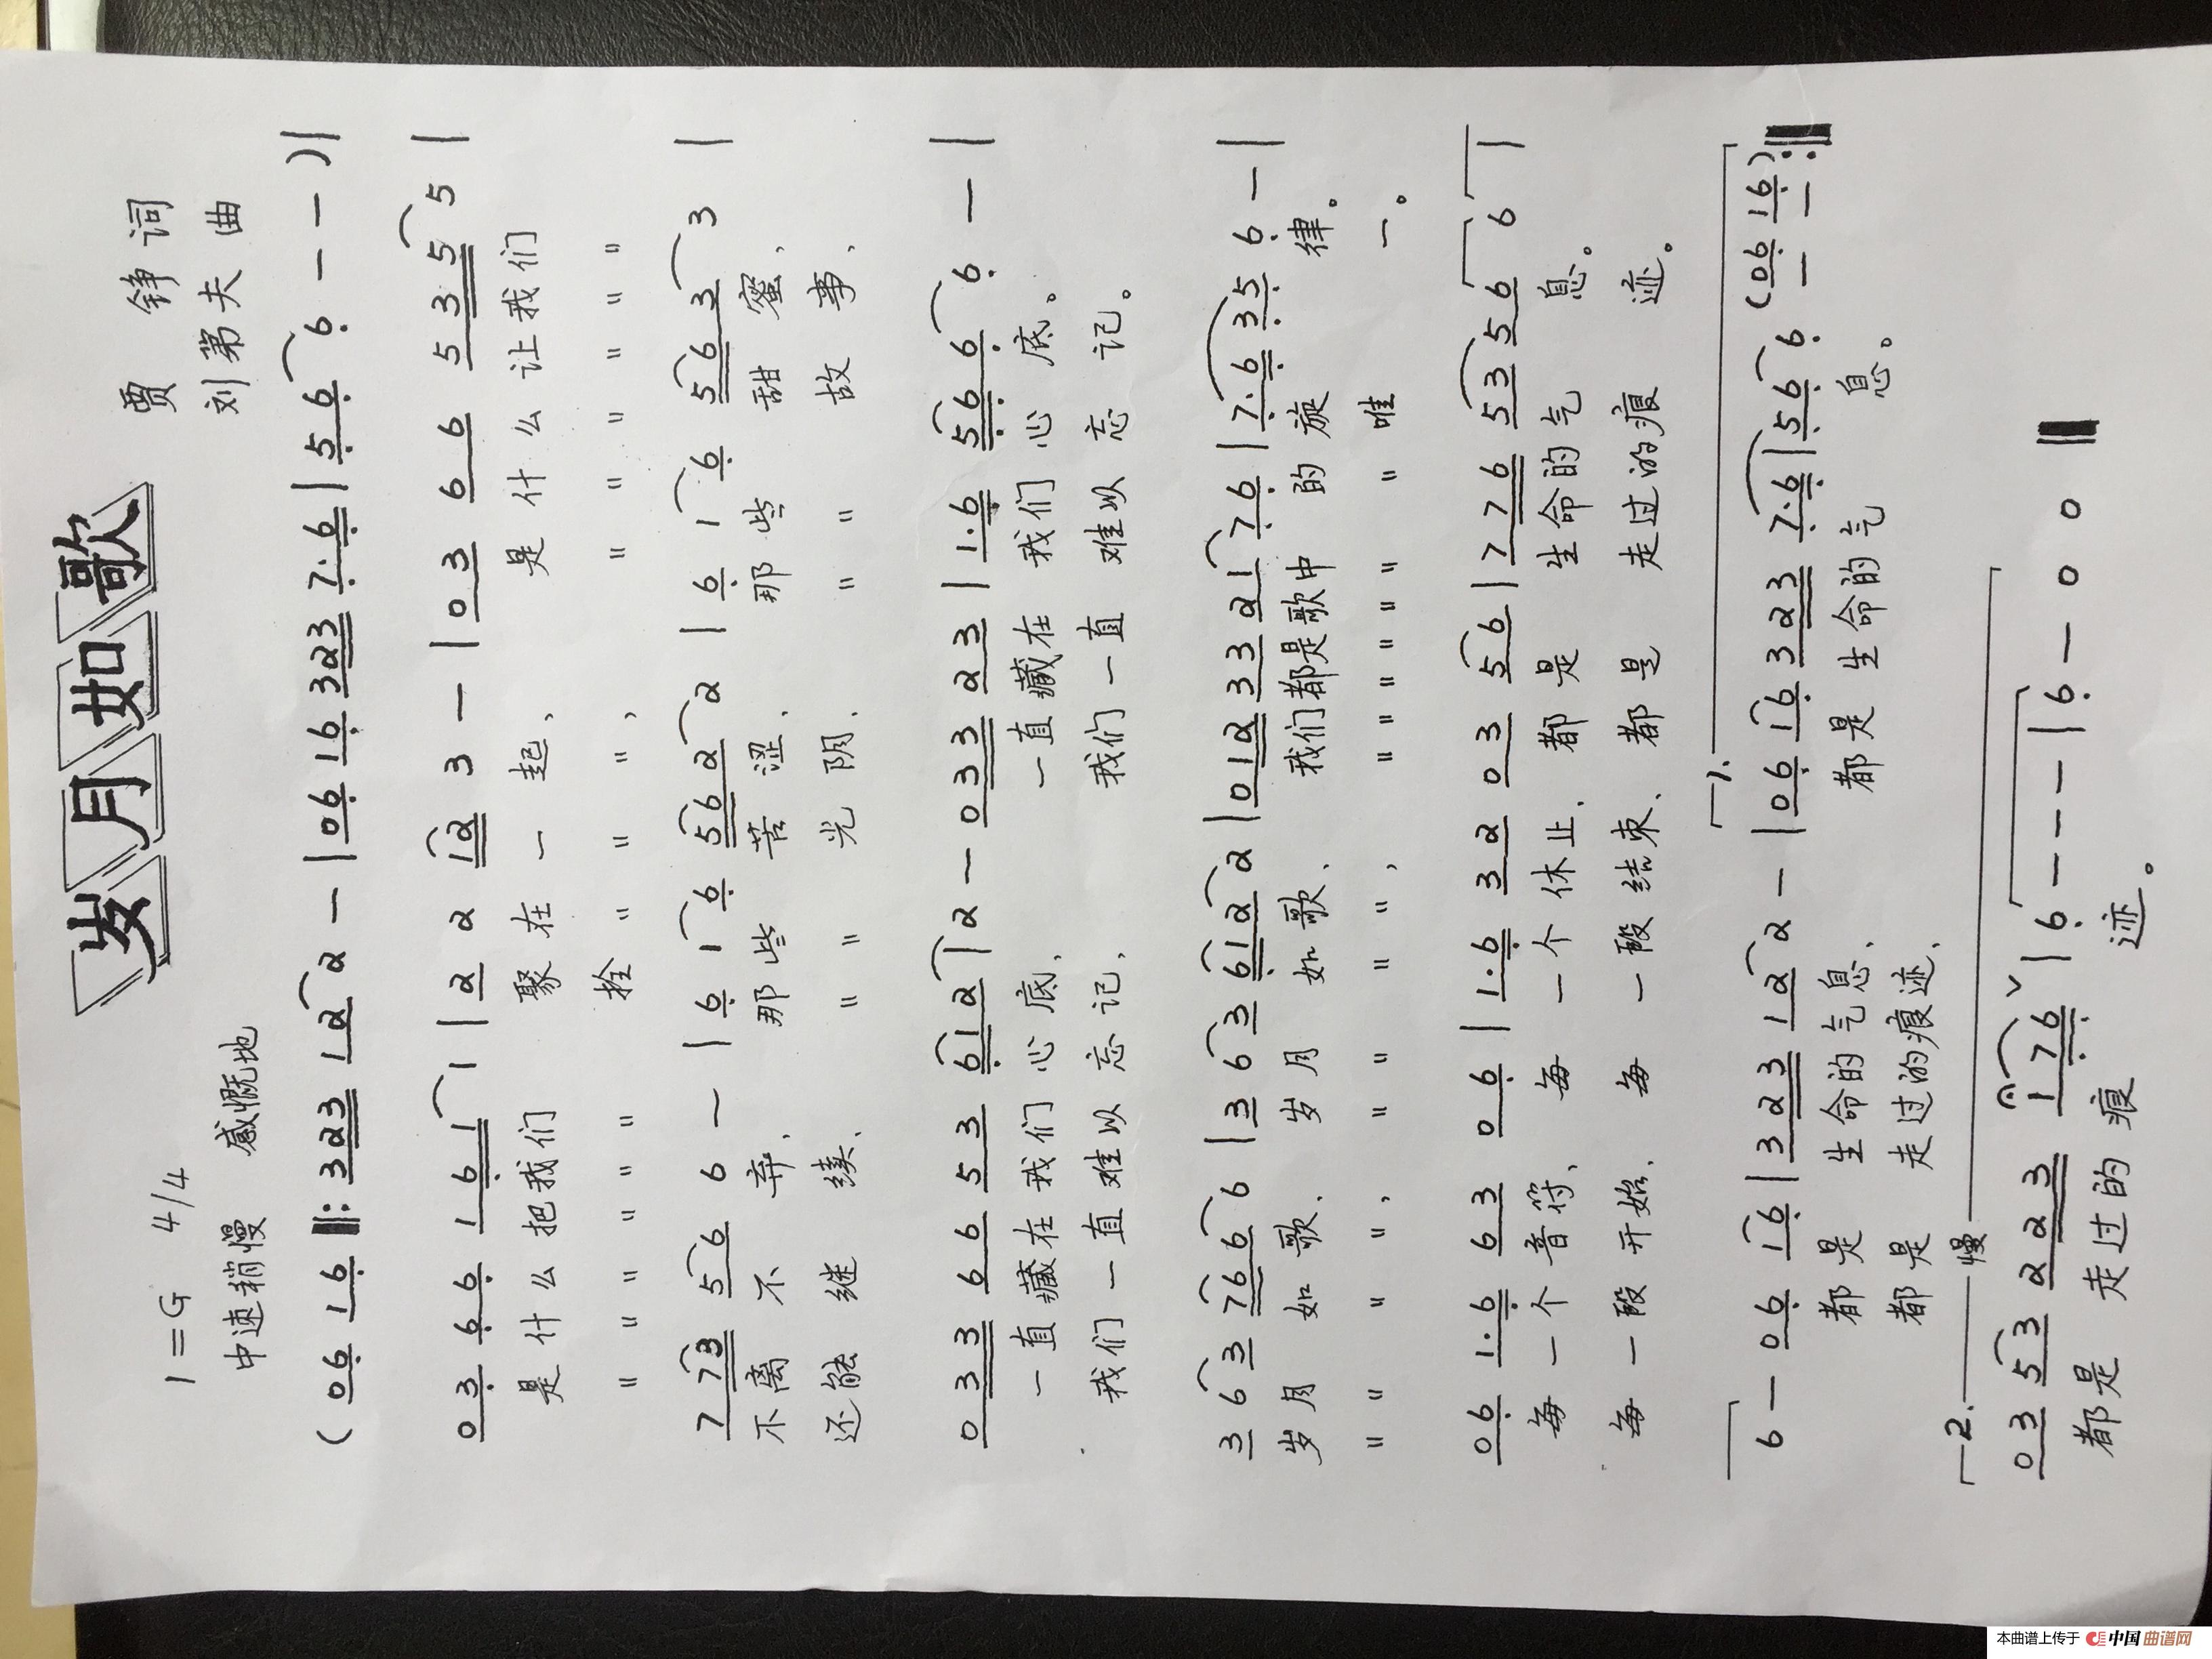 岁月如歌
贾 铮 词
1=G 4/4
刘第夫 曲
中速稍慢 感慨地
(06 16 ‖: 323 12 2 - | 06 16 323 7·6 | 56 6 - - )|
03 66 161 1 | 2 2 12 3 - | 03 66 535 5 |
是什么把我们 聚在一起、 是什么让我们
" " " " " " 拴 " " " , " " " " " "
773 56 6 - | 6 1 6 562 2 | 6 1 6 563 3 |
不离不弃、 那些苦涩、 那些甜蜜、
还能继续、 " " 光阴、 " " 故事、
033 66 53 612 | 2 - 033 23 | 1·6 566 6 - |
一直藏在我们心底、 一直藏在我们心底。
我们一直难以忘记, 我们一直难以忘记。
3 6 3 766 6 | 3 6 3 612 2 | 012 33 21 76 | 7·6 35 6 - |
岁月如歌、 岁月如歌、 我们都是歌中的旋律。
" " " " , " " " " , " " " " " " " 唯一。
06 1·6 63 06 | 1·6 32 03 56 | 776 53 56 6 |
每一个音符、每一个休止、都是生命的气息。
每一段开始、每一段结束、都是走过的痕迹。
1.
6 - 06 16 | 323 12 2 - | 06 16 323 7·6 | 56 6 (06 16) - - :‖
都是生命的气息、 都是生命的气息。
都是走过的痕迹、
2. 慢
03 53 2 23 176 ∨ | 6 - - - | 6 - 0 0 ‖
都是走过的痕迹。
本曲谱上传于 中国曲谱网